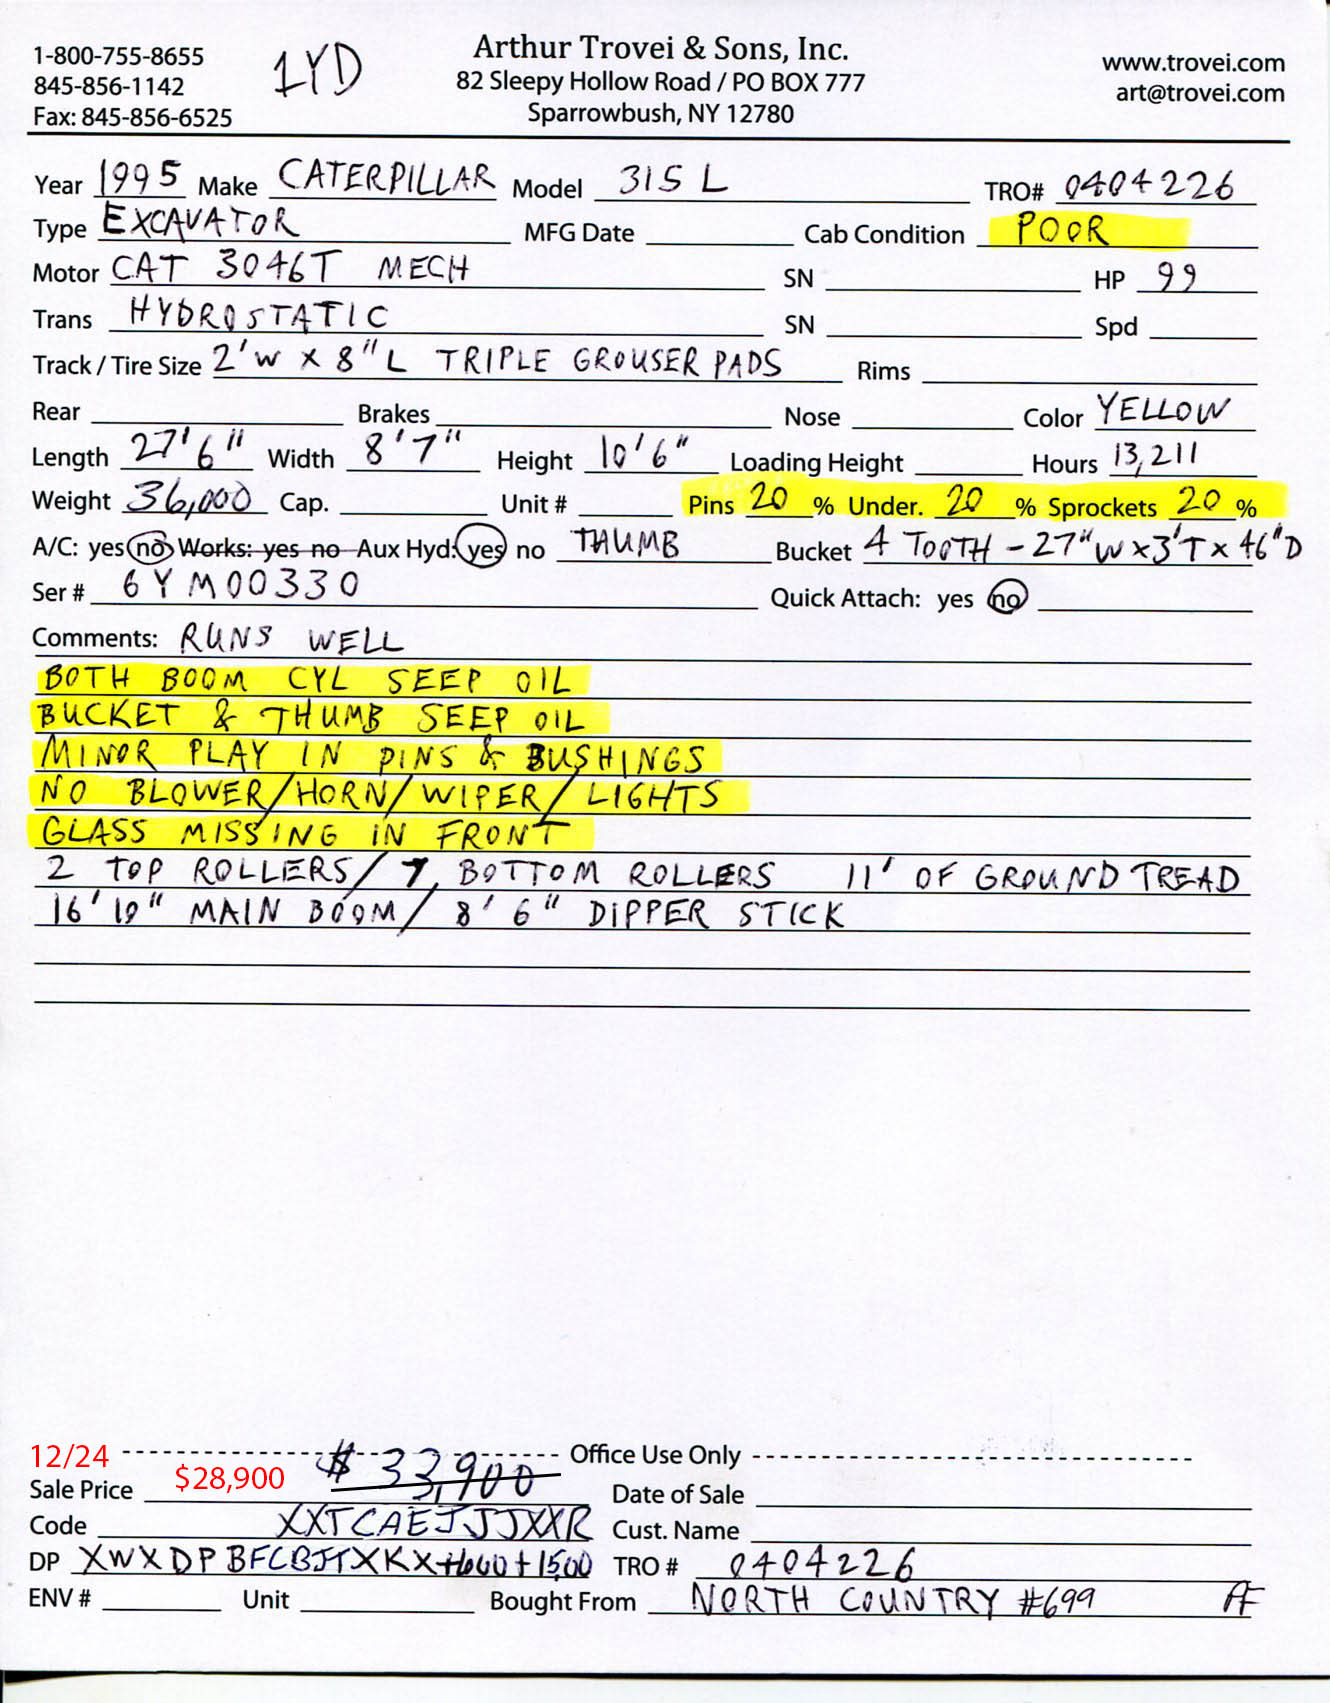 1-800-755-8655 1YD Arthur Trovei & Sons, Inc. www.trovei.com
845-856-1142 82 Sleepy Hollow Road / PO BOX 777 art@trovei.com
Fax: 845-856-6525 Sparrowbush, NY 12780
Year 1995 Make CATERPILLAR Model 315 L TRO# 0404226
Type EXCAVATOR MFG Date Cab Condition POOR
Motor CAT 3046T MECH SN HP 99
Trans HYDROSTATIC SN Spd
Track / Tire Size 2'W X 8"L TRIPLE GROUSER PADS Rims
Rear Brakes Nose Color YELLOW
Length 27'6" Width 8'7" Height 10'6" Loading Height Hours 13,211
Weight 36,000 Cap. Unit # Pins 20 % Under. 20 % Sprockets 20 %
A/C: yes no Works: yes no Aux Hyd: yes no THUMB Bucket 4 TOOTH - 27"W x 3'T x 46"D
Ser # 6YM00330 Quick Attach: yes no
Comments: RUNS WELL
BOTH BOOM CYL SEEP OIL
BUCKET & THUMB SEEP OIL
MINOR PLAY IN PINS & BUSHINGS
NO BLOWER/HORN/WIPER/LIGHTS
GLASS MISSING IN FRONT
2 TOP ROLLERS/7 BOTTOM ROLLERS 11' OF GROUND TREAD
16'10" MAIN BOOM/ 8'6" DIPPER STICK
12/24 Office Use Only
Sale Price $28,900 $33,900 Date of Sale
Code XXTCAEJJJXXR Cust. Name
DP XWXDPBFCBJTXKX+600+1500 TRO # 0404226
ENV # Unit Bought From NORTH COUNTRY #699 AF